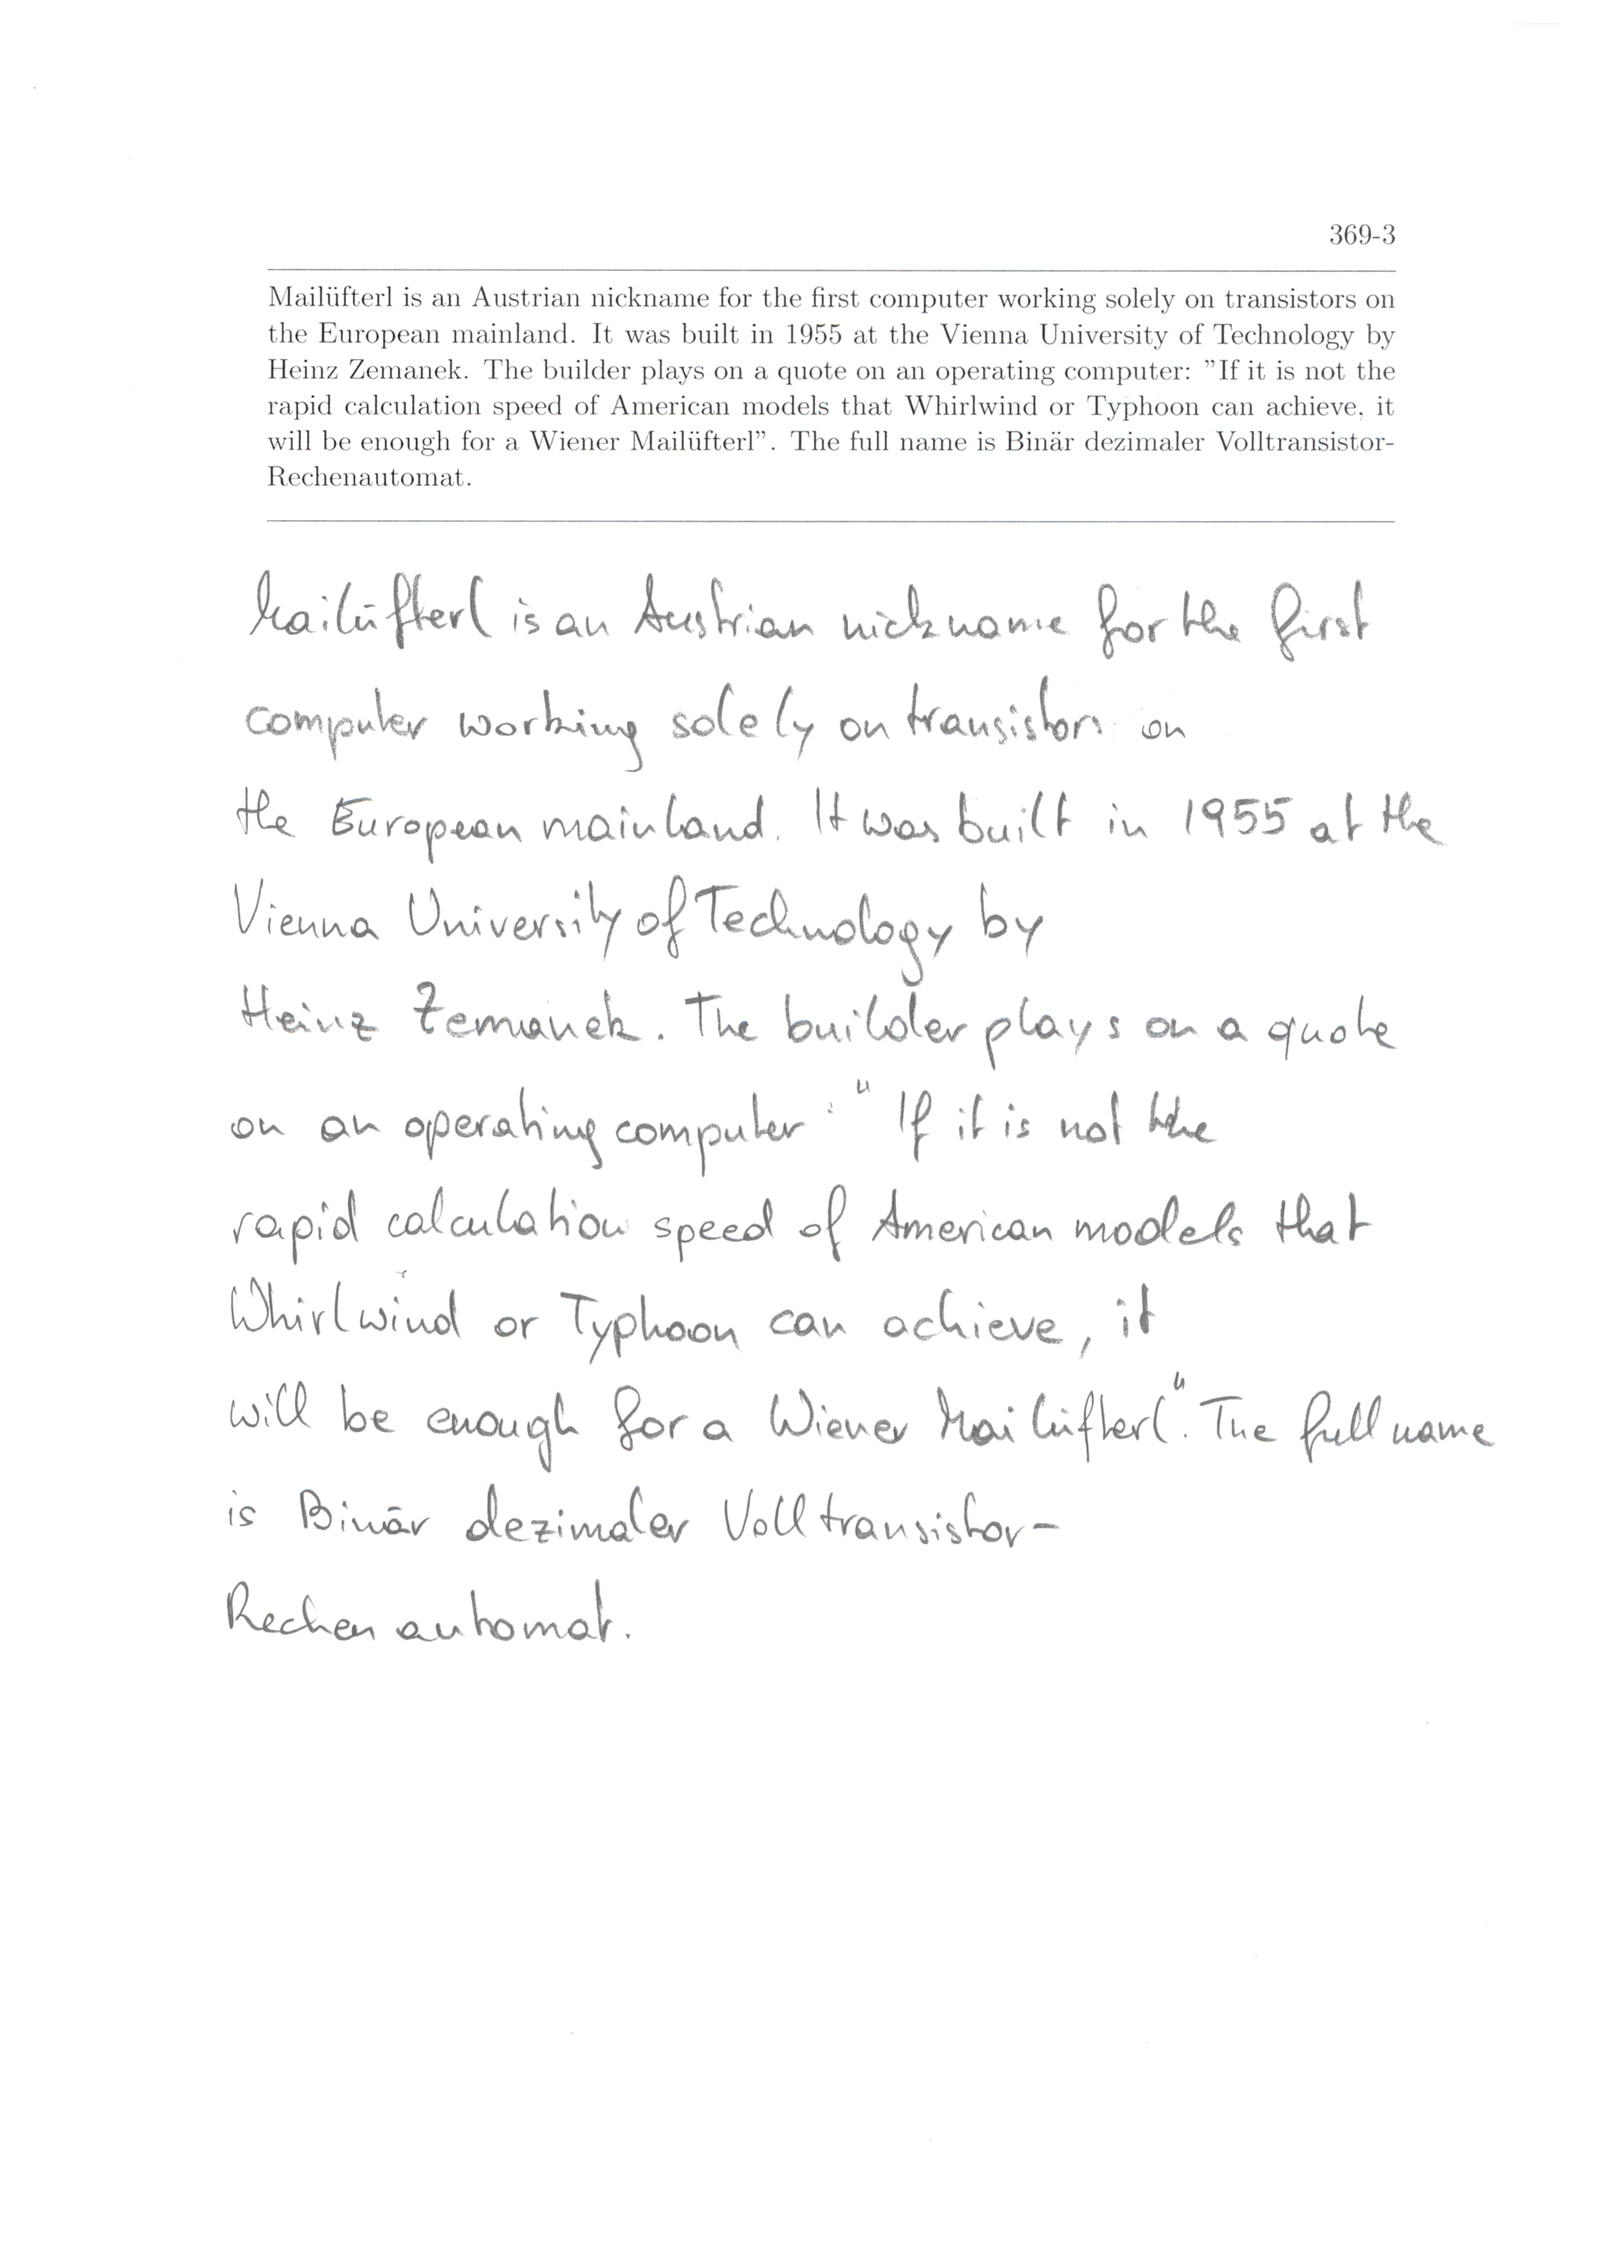 369-3
Mailüfterl is an Austrian nickname for the first computer working solely on transistors on
the European mainland. It was built in 1955 at the Vienna University of Technology by
Heinz Zemanek. The builder plays on a quote on an operating computer: "If it is not the
rapid calculation speed of American models that Whirlwind or Typhoon can achieve, it
will be enough for a Wiener Mailüfterl". The full name is Binär dezimaler Volltransistor-
Rechenautomat.
Mailüfterl is an Austrian nickname for the first
computer working solely on transistors on
the European mainland. It was built in 1955 at the
Vienna University of Technology by
Heinz Zemanek. The builder plays on a quote
on an operating computer: "If it is not the
rapid calculation speed of American models that
Whirlwind or Typhoon can achieve, it
will be enough for a Wiener Mailüfterl". The full name
is Binär dezimaler Volltransistor-
Rechenautomat.